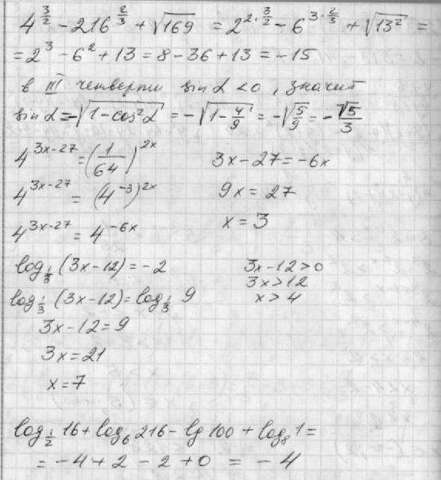 4^(3/2) - 216^(2/3) + √169 = 2^(2·3/2) - 6^(3·2/3) + √13² =
= 2³ - 6² + 13 = 8 - 36 + 13 = -15
в III четверти sin α < 0, значит
sin α = -√(1-cos²α) = -√(1-4/9) = -√(5/9) = -√5/3
4^(3x-27) = (1/64)^(2x)
4^(3x-27) = (4^(-3))^(2x)
4^(3x-27) = 4^(-6x)
3x-27 = -6x
9x = 27
x = 3
log_(1/3) (3x-12) = -2
log_(1/3) (3x-12) = log_(1/3) 9
3x-12 = 9
3x = 21
x = 7
3x-12 > 0
3x > 12
x > 4
log_(1/2) 16 + log_6 216 - lg 100 + log_8 1 =
= -4 + 2 - 2 + 0 = -4